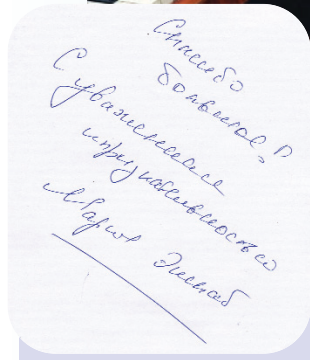 Спасибо
большое!
С уважением
и признательностью
Мария